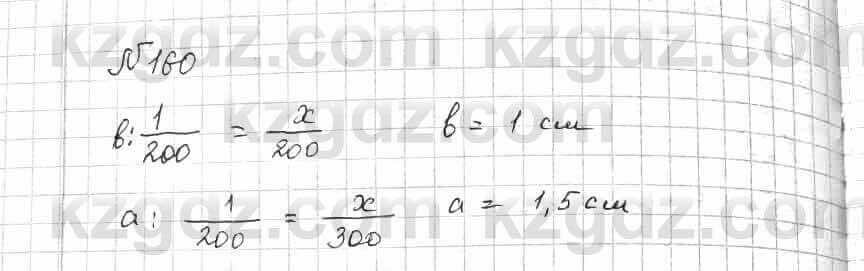 kzgdz.com kzgdz.com
№160
в: 1/200 = x/200 в = 1 см
kzgdz.com kzgdz.com
a: 1/200 = x/300 a = 1,5 см
kzgdz.com kzgdz.com